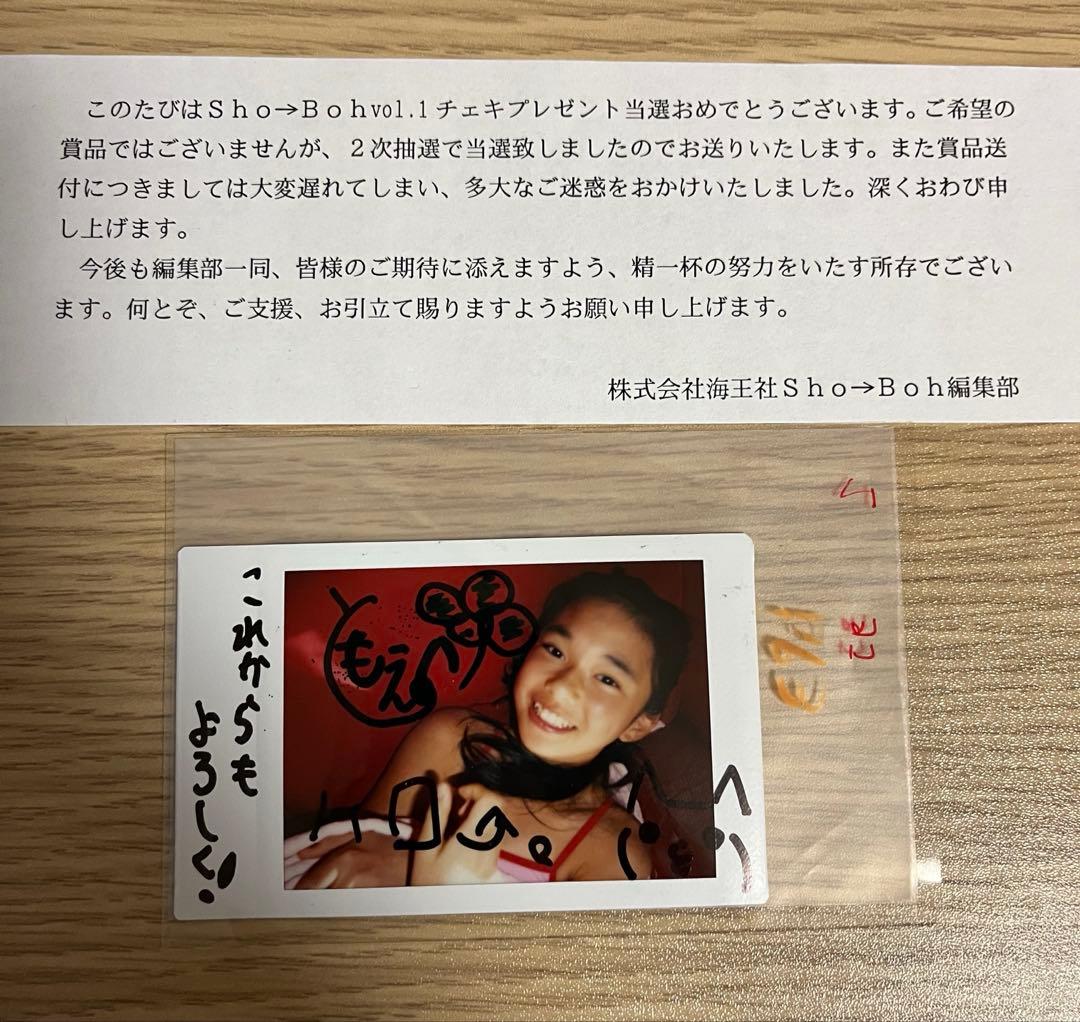 このたびはＳｈｏ→Ｂｏｈvol.1チェキプレゼント当選おめでとうございます。ご希望の
賞品ではございませんが、２次抽選で当選致しましたのでお送りいたします。また賞品送
付につきましては大変遅れてしまい、多大なご迷惑をおかけいたしました。深くおわび申
し上げます。
今後も編集部一同、皆様のご期待に添えますよう、精一杯の努力をいたす所存でござい
ます。何とぞ、ご支援、お引立て賜りますようお願い申し上げます。
株式会社海王社Ｓｈｏ→Ｂｏｈ編集部
これからも
よろしく!
ともえ